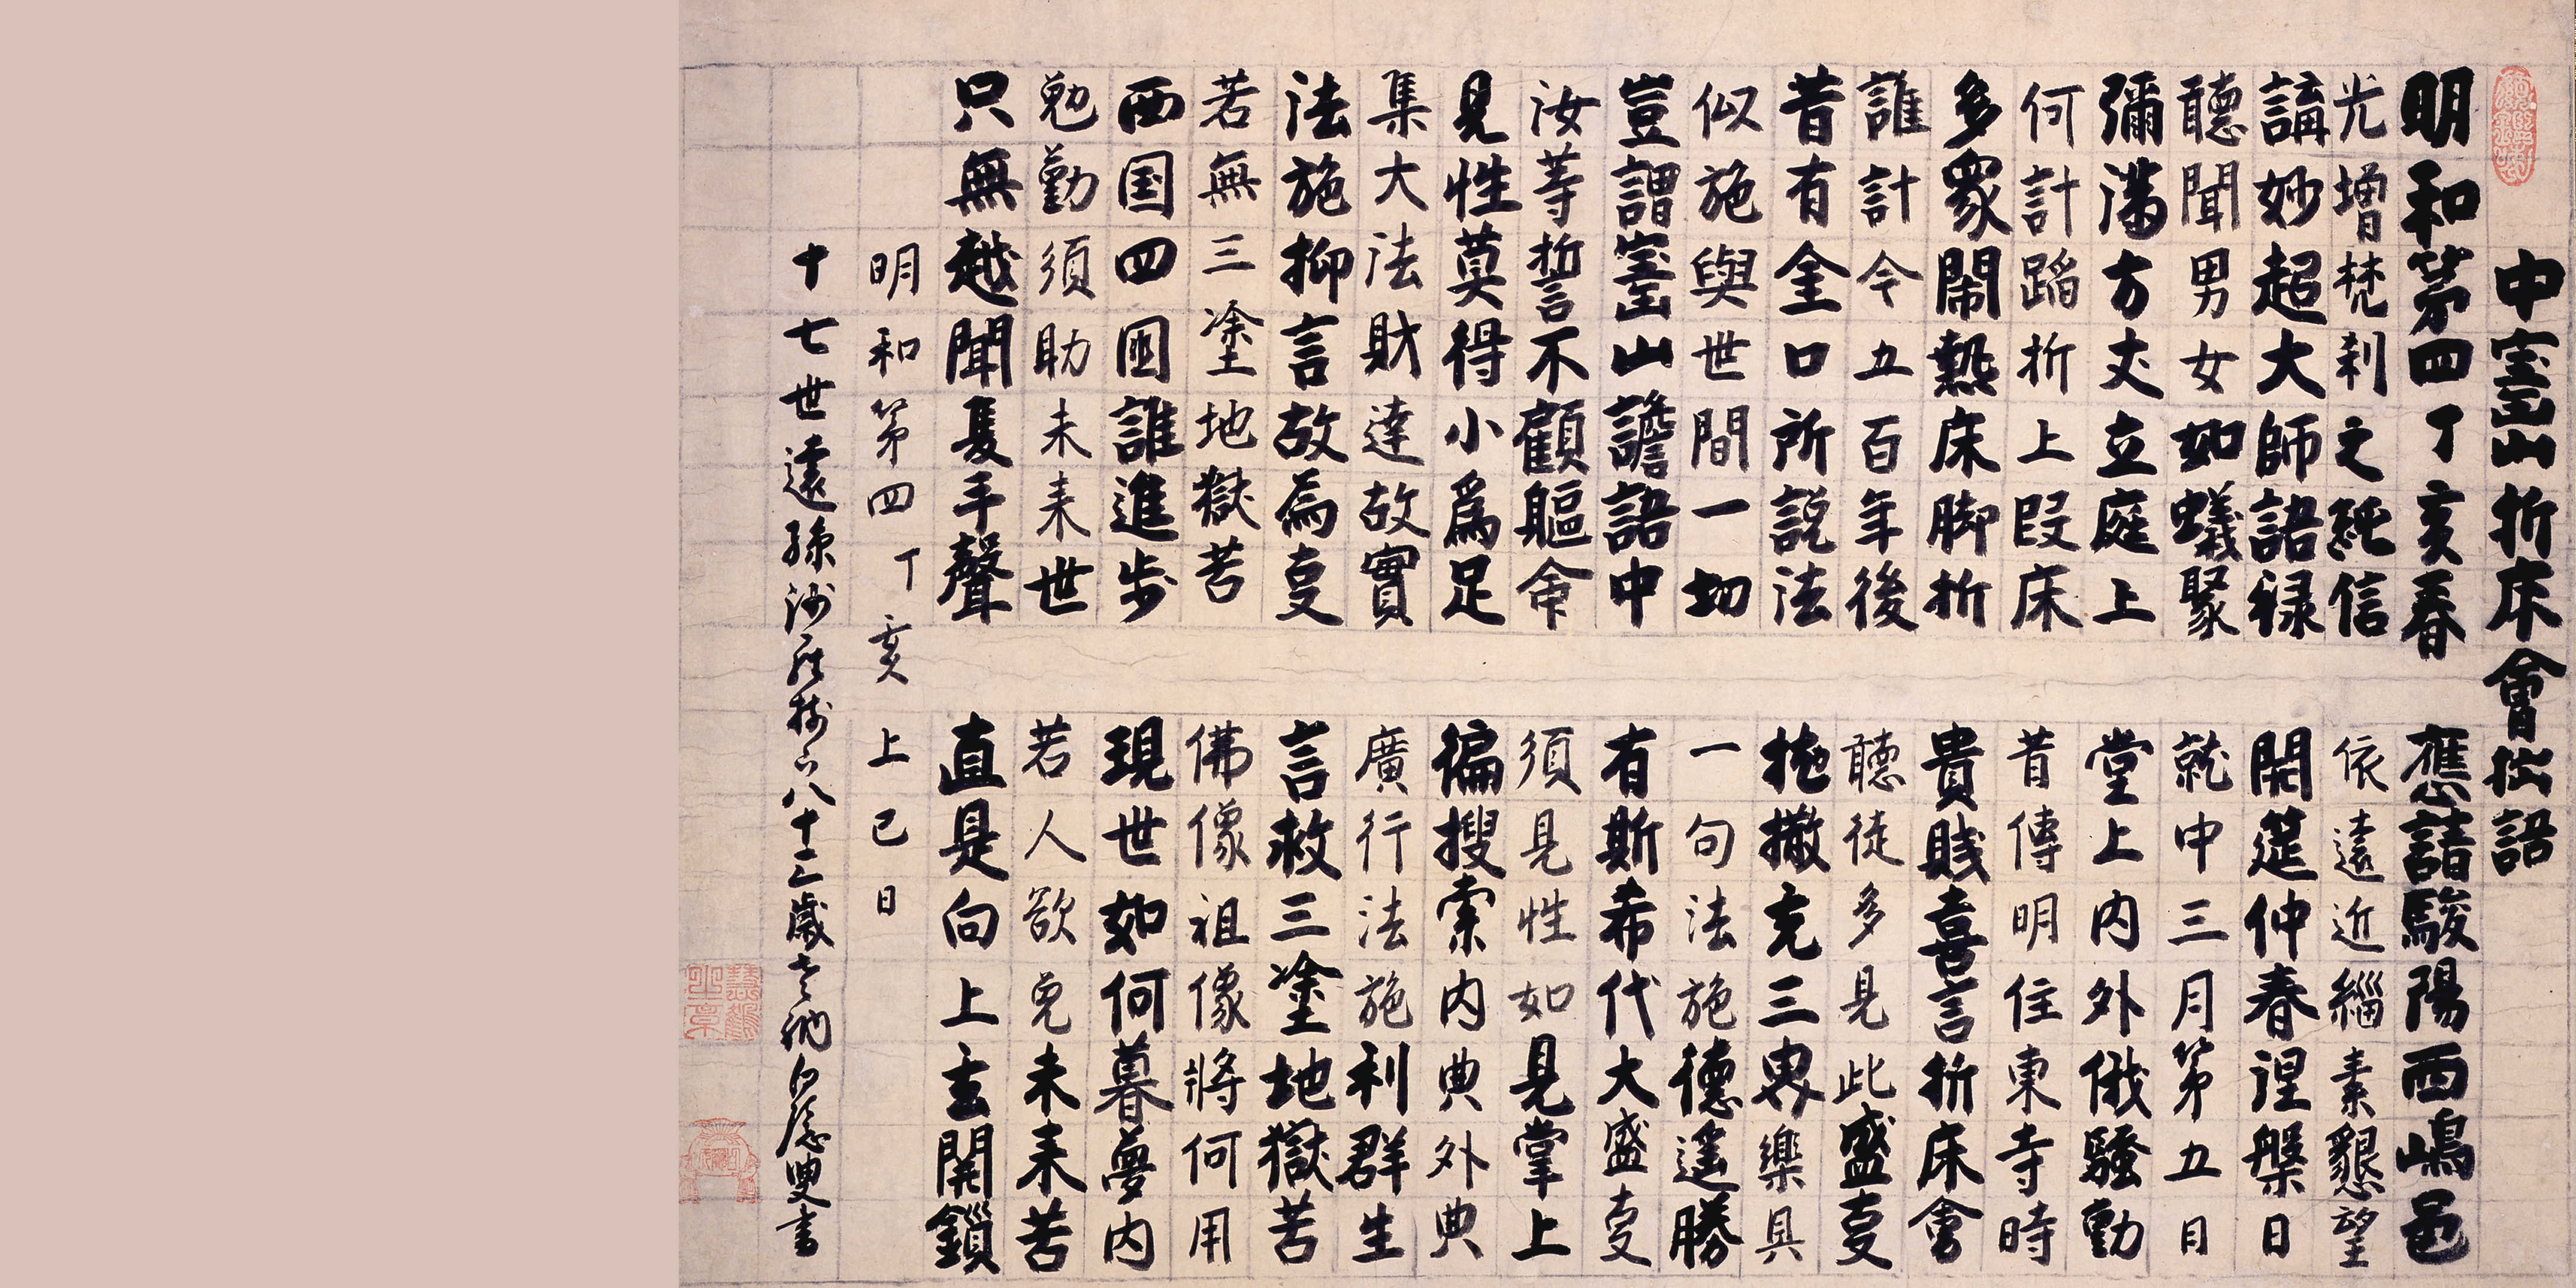 中寶山折床會拙語
明和第四丁亥春 應請駿陽西嶋邑
光增梵刹之純信 依遠近緇素懇望
講妙超大師語禄 開莚仲春涅槃日
聽聞男女如蟻聚 就中三月第五日
彌滿方丈立庭上 堂上内外俄騒動
何計蹈折上段床 昔傳明住東寺時
多衆鬧熱床脚折 貴賤喜言折床會
誰計今五百年後 聽徒多見此盛叓
昔有金口所説法 拖撒充三界樂具
似施與世間一切 一句法施德遙勝
豈謂寶山譫語中 有斯希代大盛叓
汝等誓不顧軀命 須見性如見掌上
見性莫得小爲足 徧搜索内典外典
集大法財達故實 廣行法施利群生
法施抑言故為叓 言救三塗地獄苦
若無三塗地獄苦 佛像祖像將何用
西国四國誰進步 現世如何暮夢内
勉勤須助未来世 若人欲免未来苦
只無越聞隻手聲 直是向上玄開鎖
明和第四丁亥上巳日
十七世遠孫沙羅樹下八十三歳老衲白隱叟書